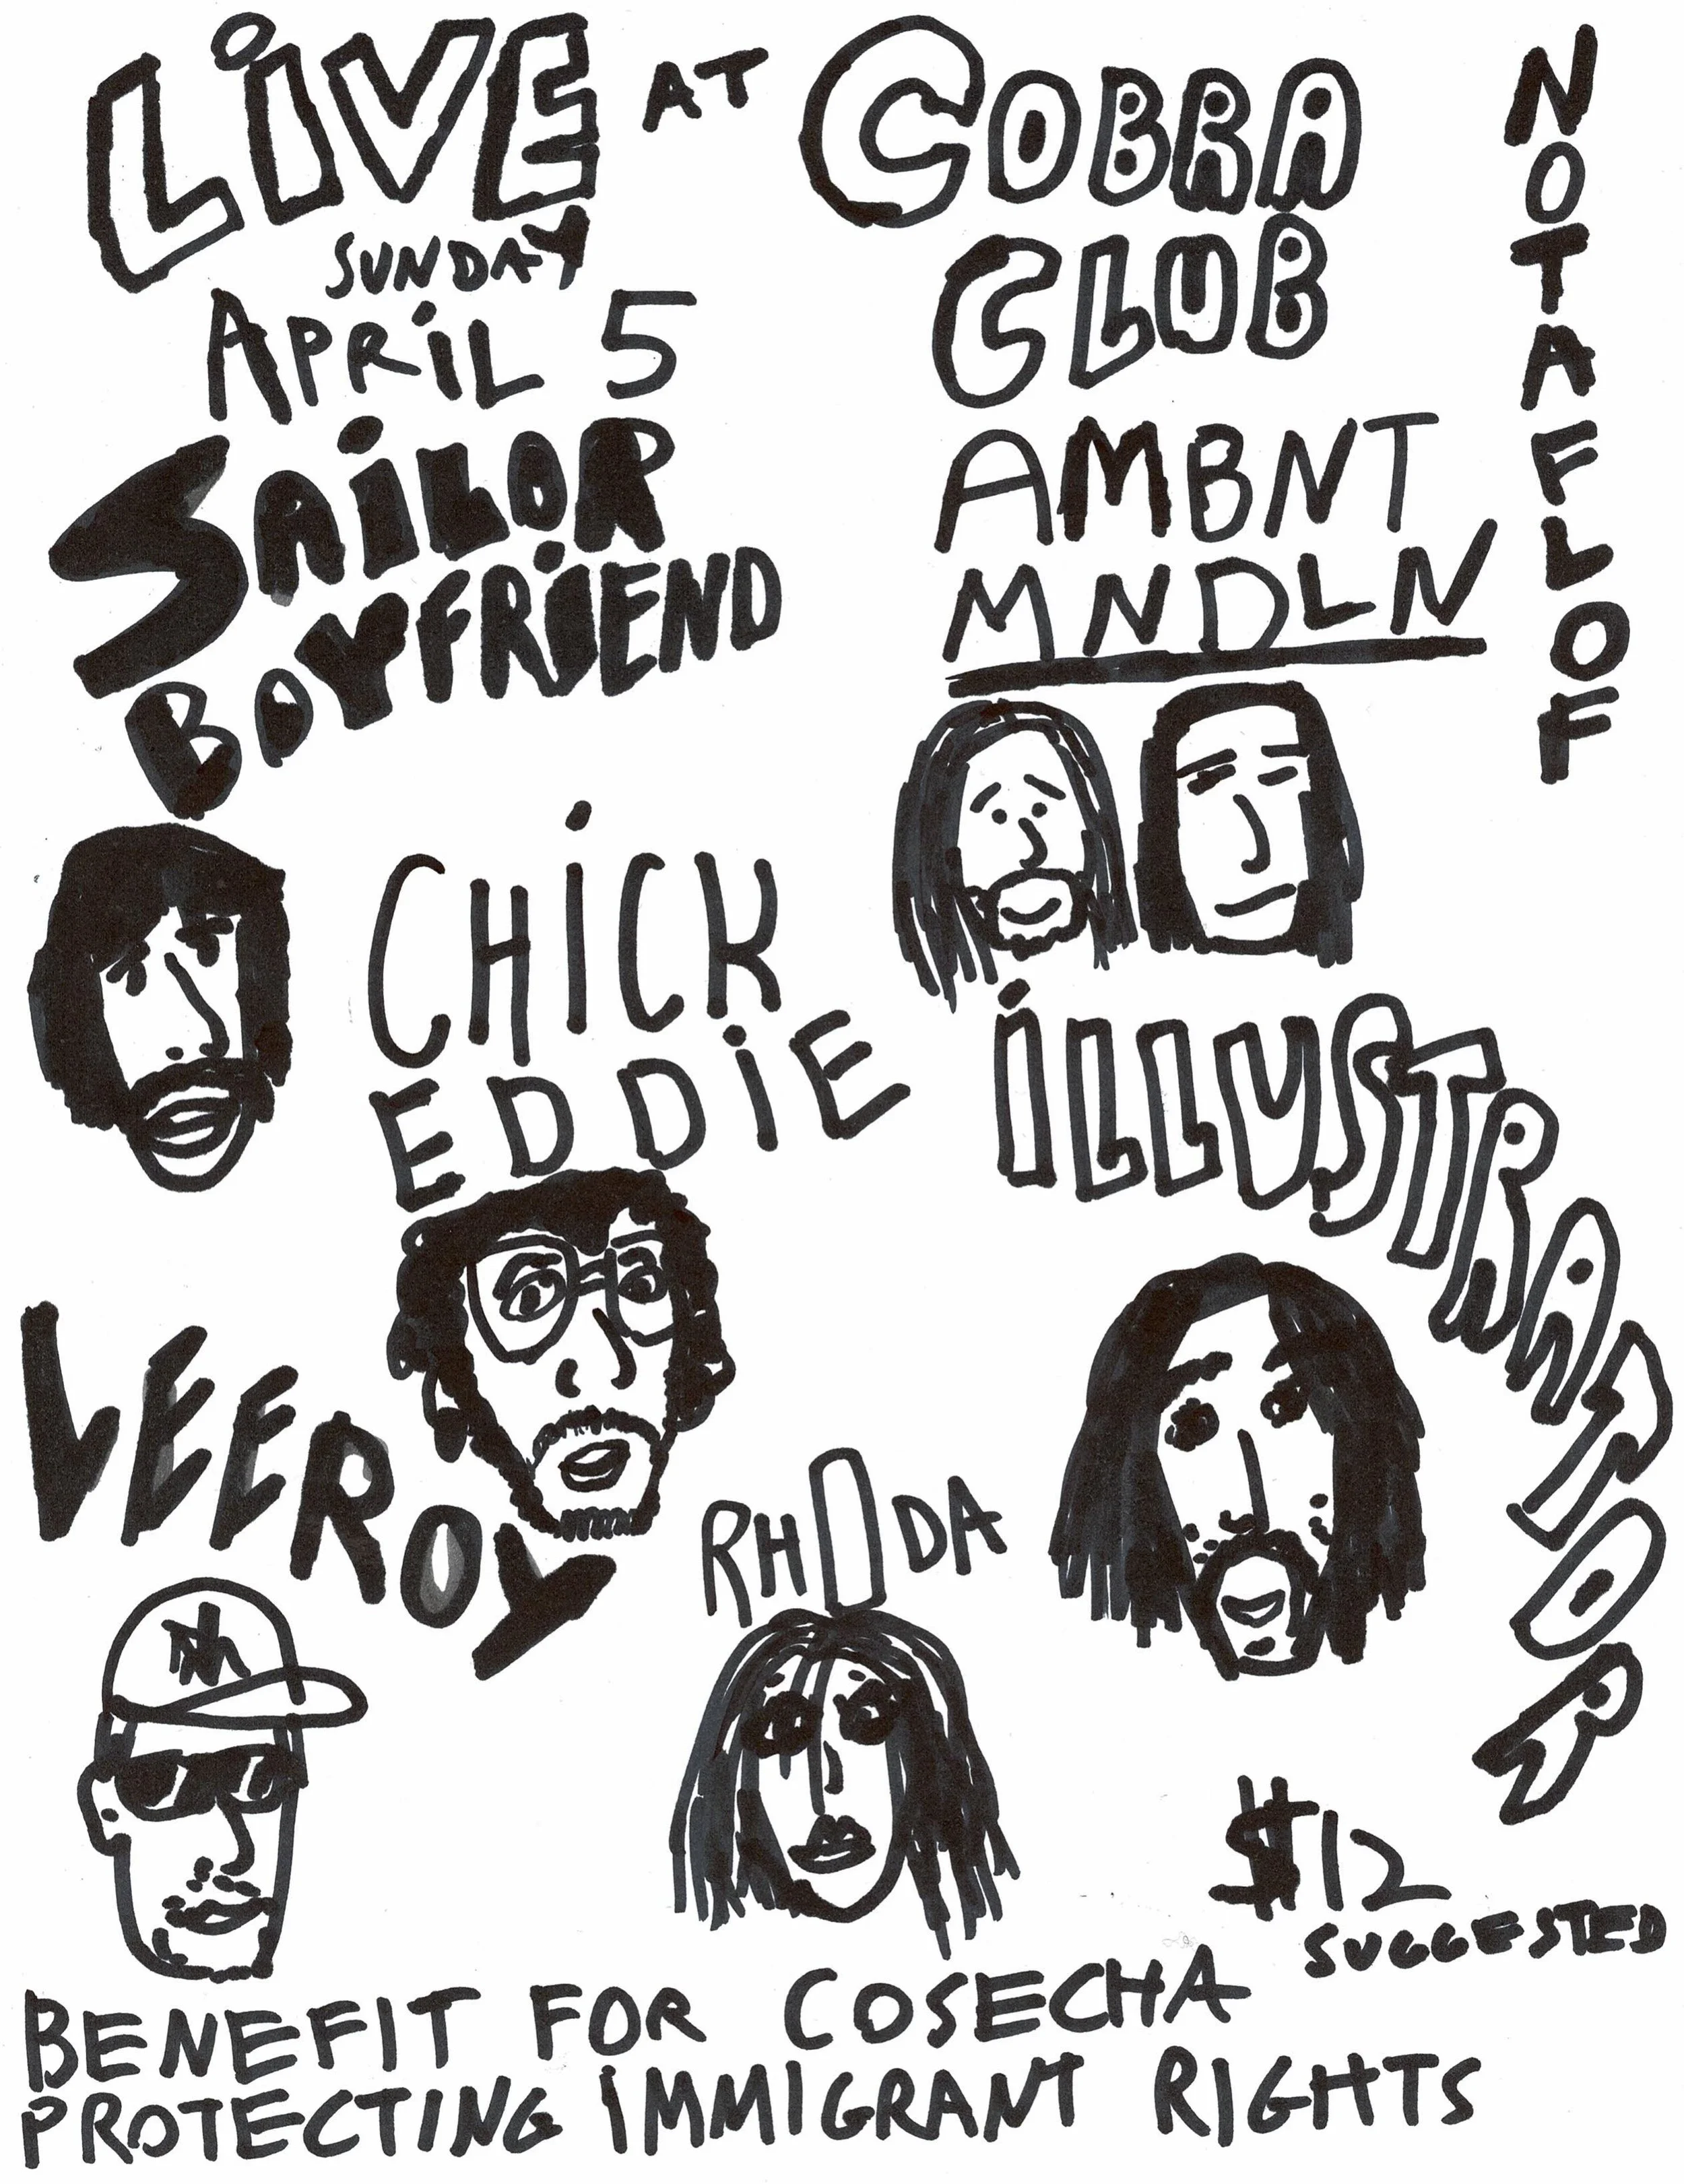 LiVE AT COBRA CLUB
SUNDAY
APRiL 5
NOTAFLOF
SAiLOR
BOYFRiEND
AMBNT
MNDLN
CHiCK
EDDiE
iLLUSTRATOR
LEEROY
RHODA
$12
SUGGESTED
BENEFIT FOR COSECHA
PROTECTING iMMIGRANT RIGHTS